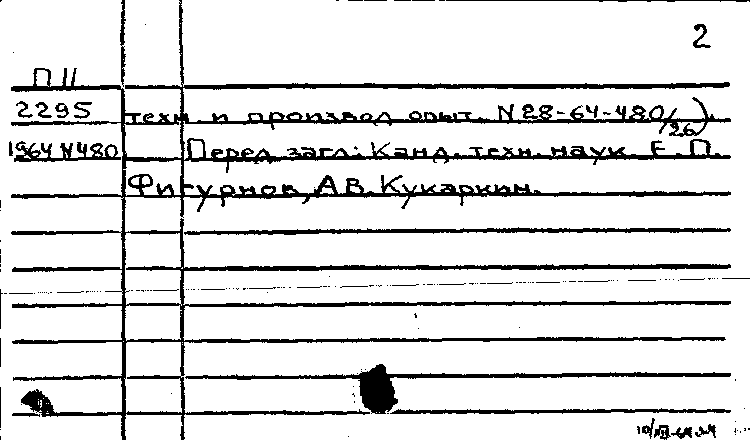 2
П 11
2295 техн. и производ. опыт. N 28-64-480/26).
1964 N480 Перед загл: Канд. техн. наук Е.П.
Фигурнов, А.В. Кукаркин.